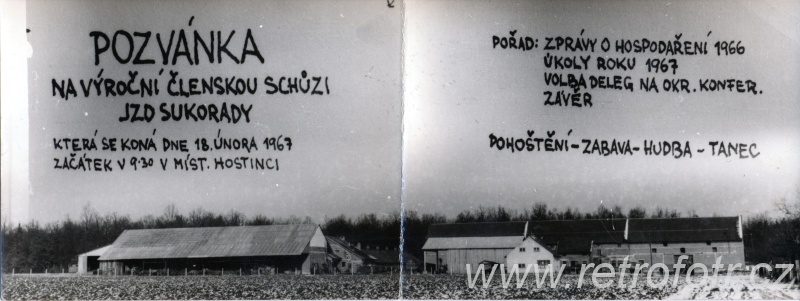 POZVÁNKA
NA VÝROČNÍ ČLENSKOU SCHŮZI
JZD SUKORADY
KTERÁ SE KONÁ DNE 18. ÚNORA 1967
ZAČÁTEK V 9·30 V MÍST. HOSTINCI
POŘAD: ZPRÁVY O HOSPODAŘENÍ 1966
ÚKOLY ROKU 1967
VOLBA DELEG NA OKR. KONFER.
ZÁVĚR
POHOŠTĚNÍ - ZABAVA - HUDBA - TANEC
www.retrofotr.cz